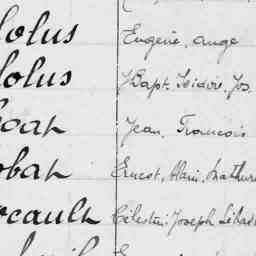 olus Eugène, Ange
olus J. Bapt. Isidore, Jos.
oat Jean, François
obat Ernest, Alain, Mathur
ocault Célestin, Joseph Sébas